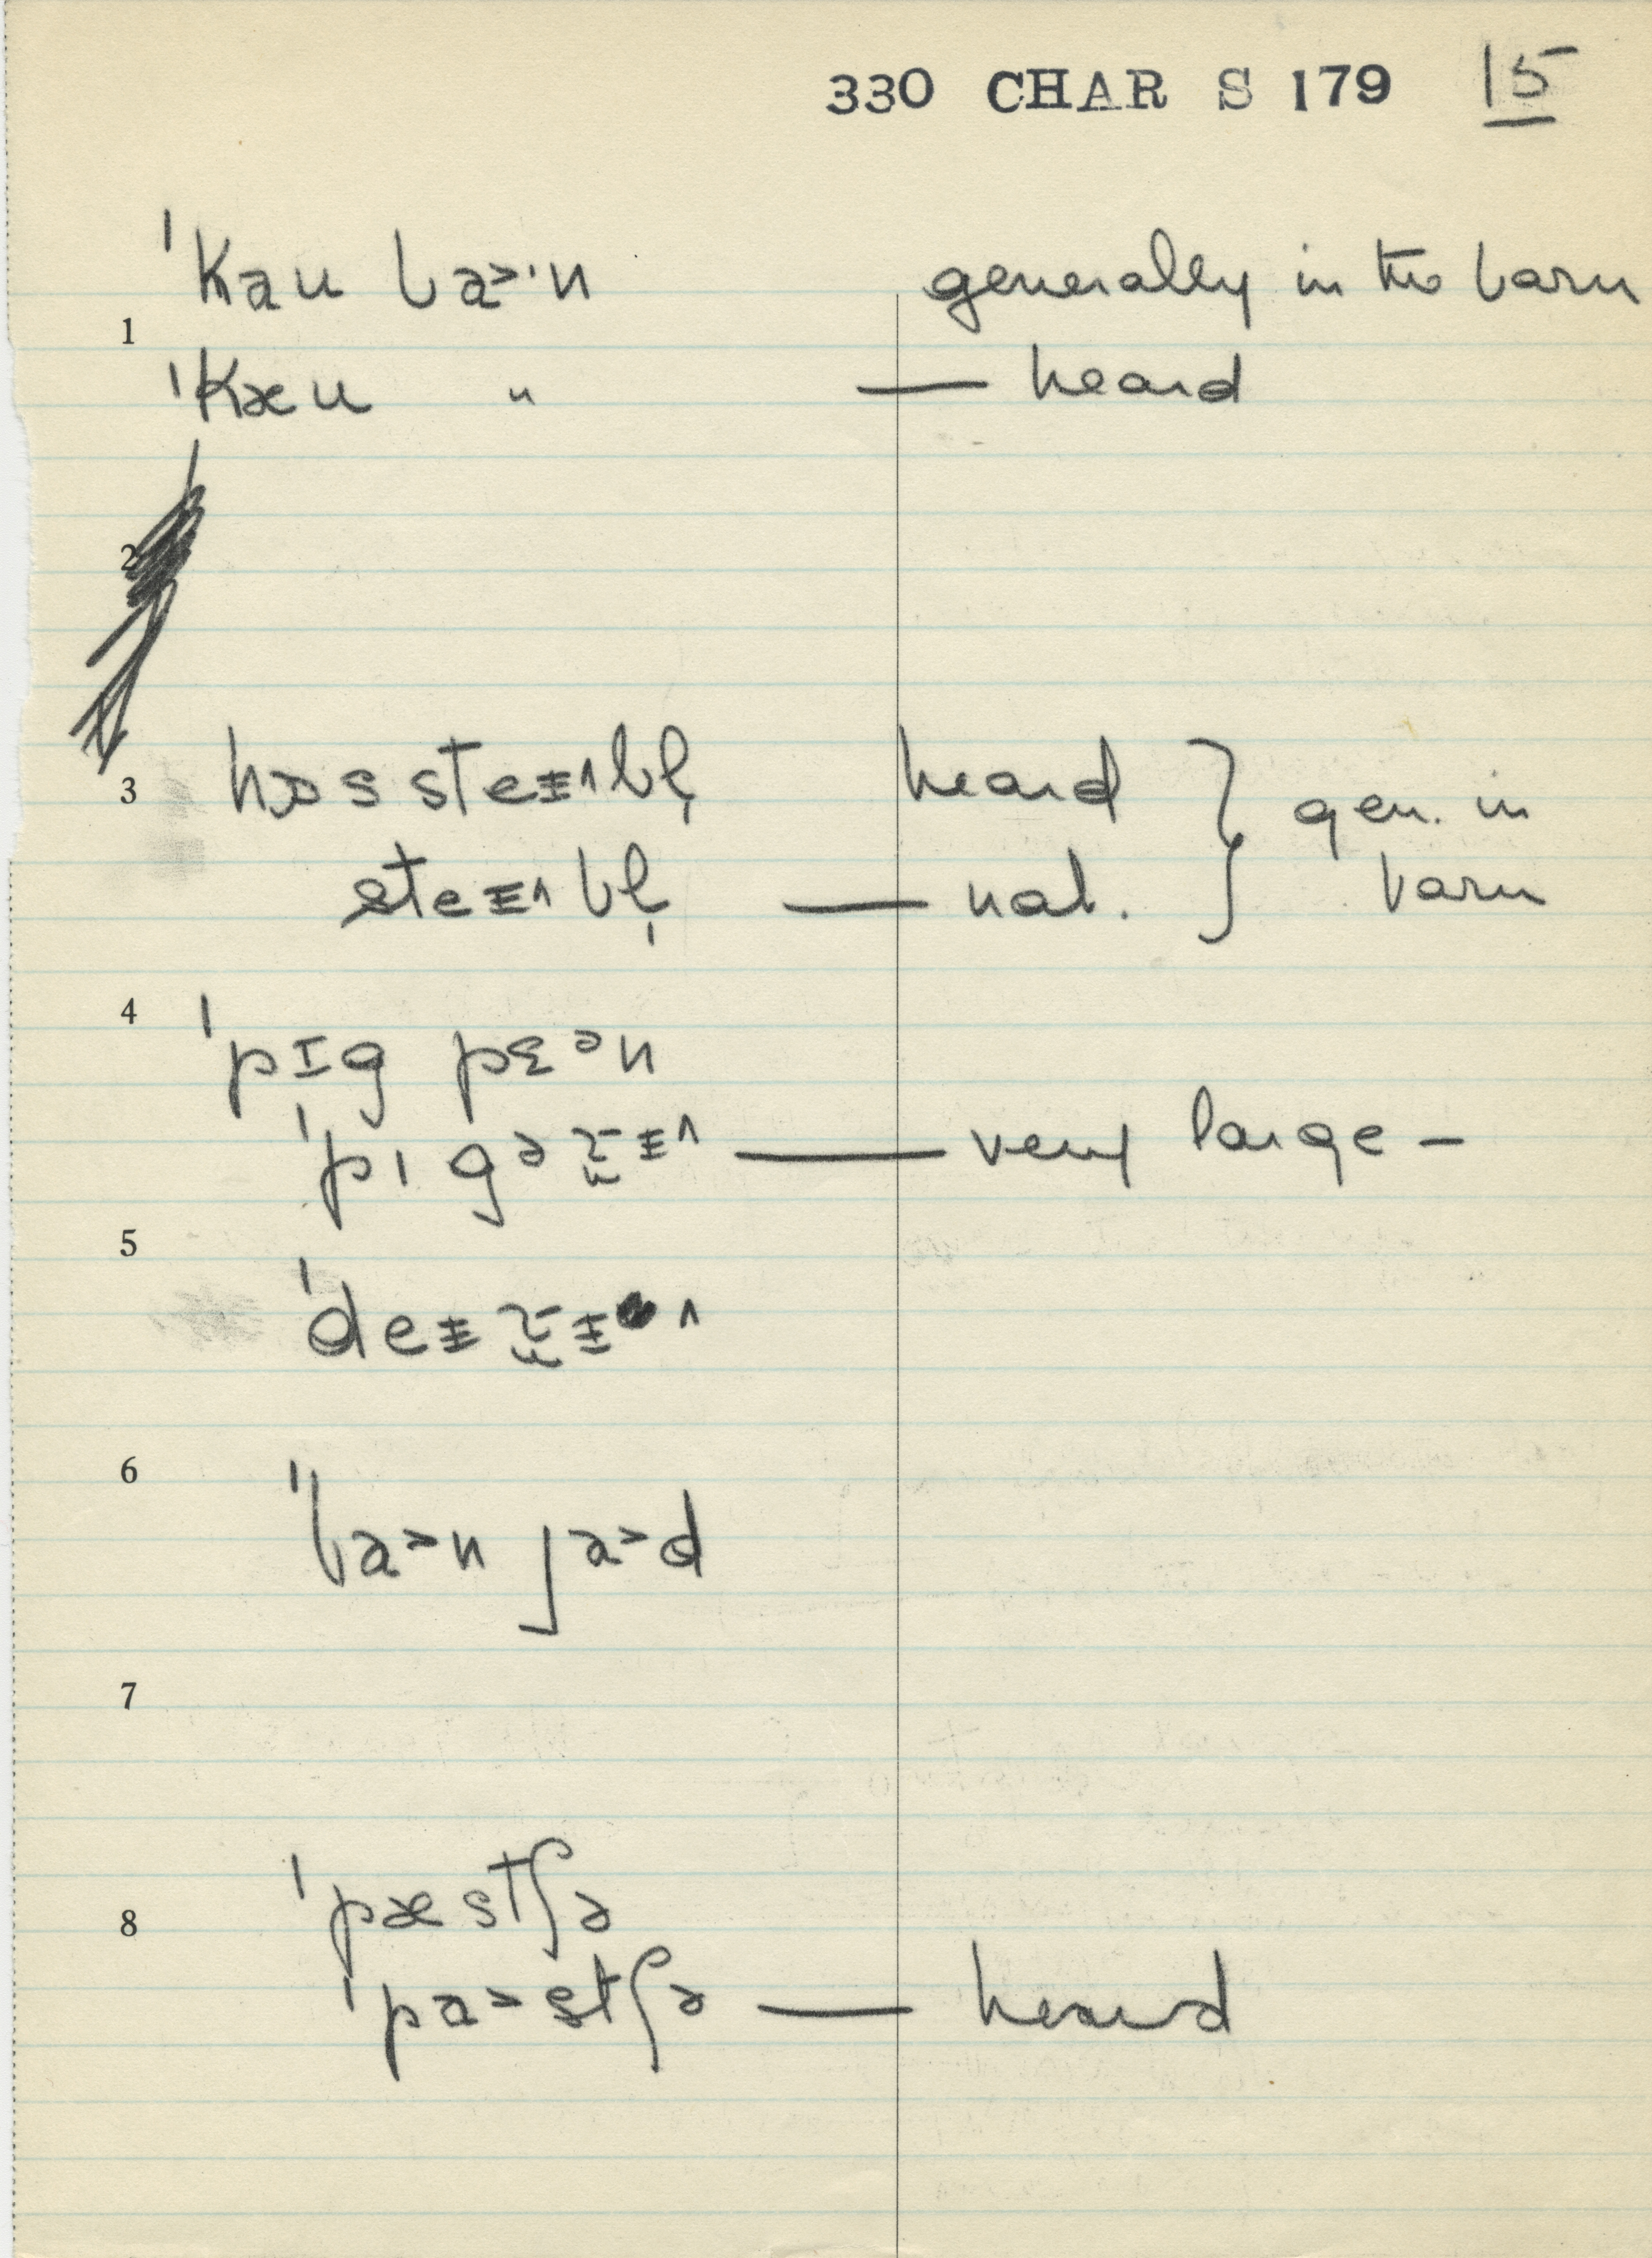 330 CHAR S 179 15
ˈkau ba>·n generally in the barn
1
ˈkæu " — heard
2
3 hɒs steɪ^bl̩ heard } gen. in
steɪ^bl̩ — nat. } barn
4
ˈpɪg pɛᵊn
ˈpɪgərɪ^ — very large –
5
ˈdeɪrɪ^
6
ˈba>n ja>d
7
ˈpæstʃə
8
ˈpa>stʃə — heard